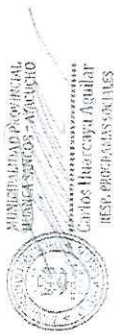 MUNICIPALIDAD PROVINCIAL
HUANCA SANCOS - AYACUCHO
Carlos Huarcaya Aguilar
RESP. PROGRAMAS SOCIALES